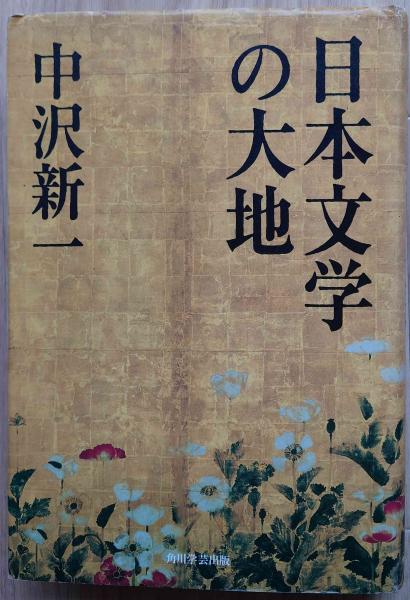 日本文学
の大地
中沢新一
角川学芸出版